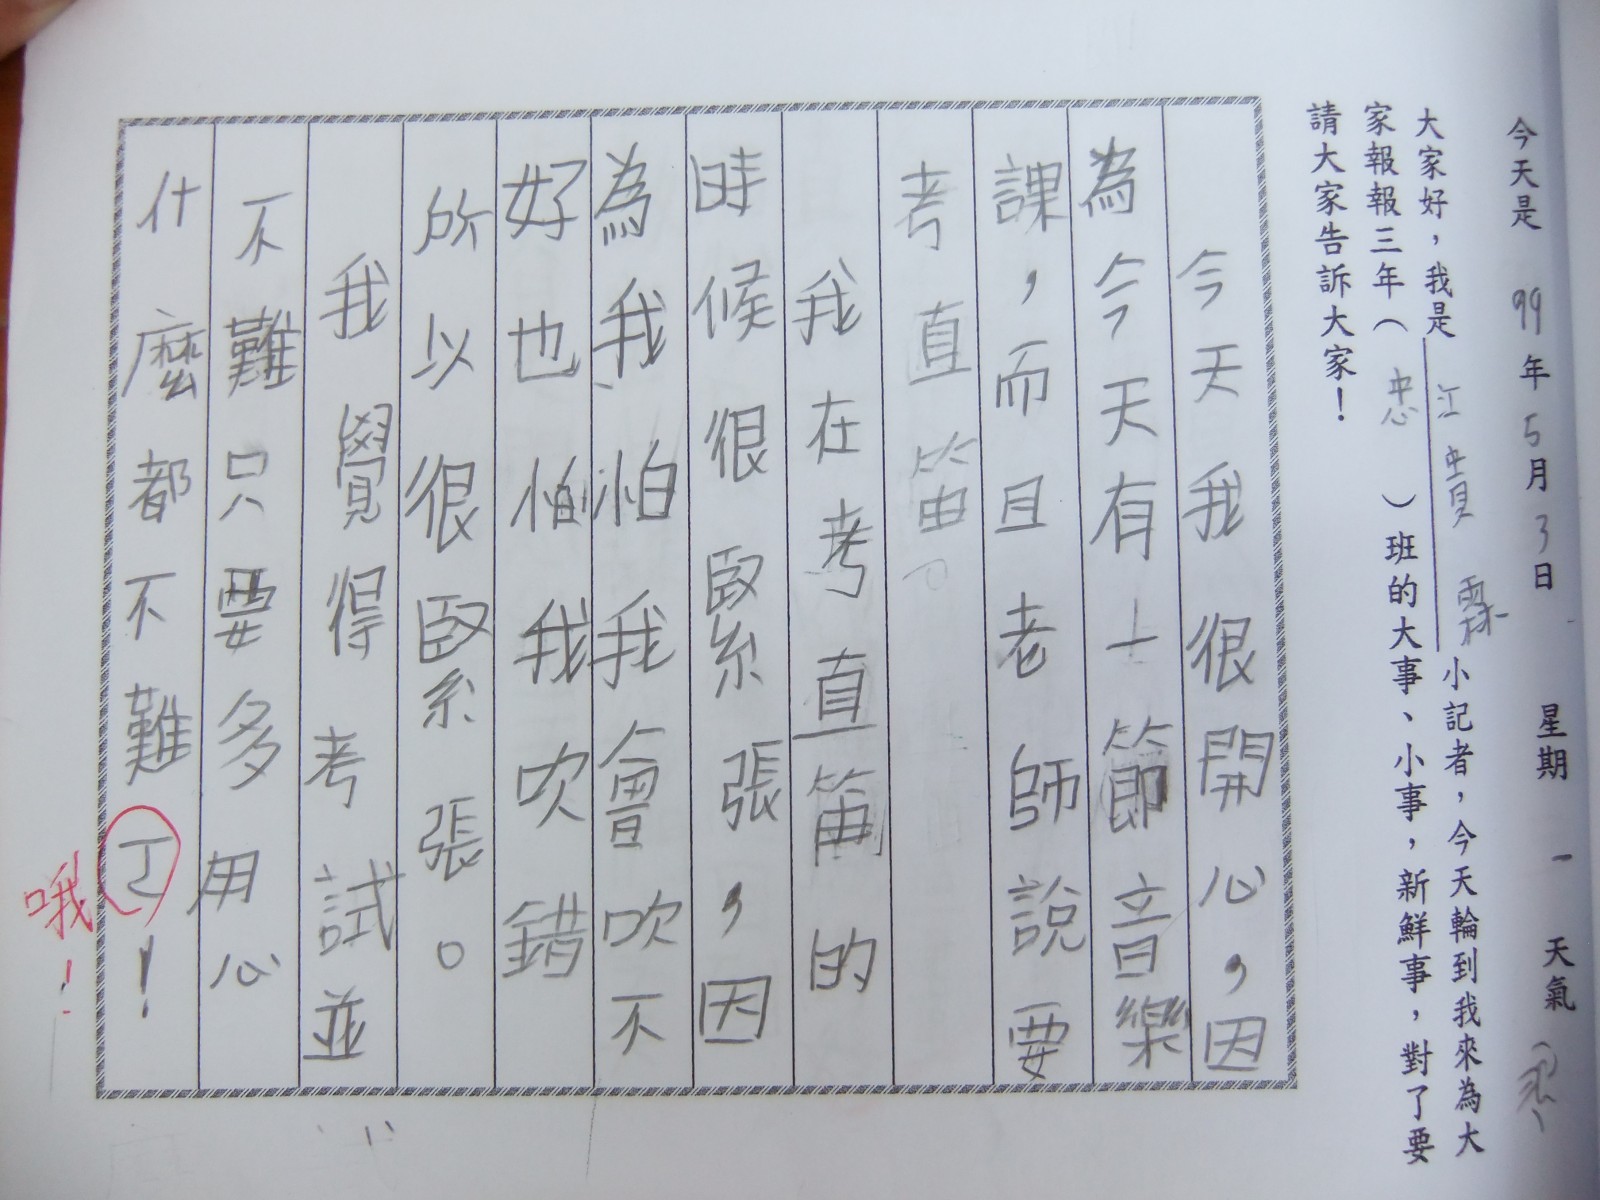 今天是 99年5月3日 星期一 天氣
大家好，我是江貴霖小記者，今天輪到我來為大
家報報三年（忠）班的大事、小事，新鮮事，對了要
請大家告訴大家！
今天我很開心，因
為今天有一節音樂
課，而且老師說要
考直笛。
我在考直笛的
時候很緊張，因
為我怕我會吹不
好也怕我吹錯
所以很緊張。
我覺得考試並
不難只要多用心
什麼都不難ㄛ！
哦！